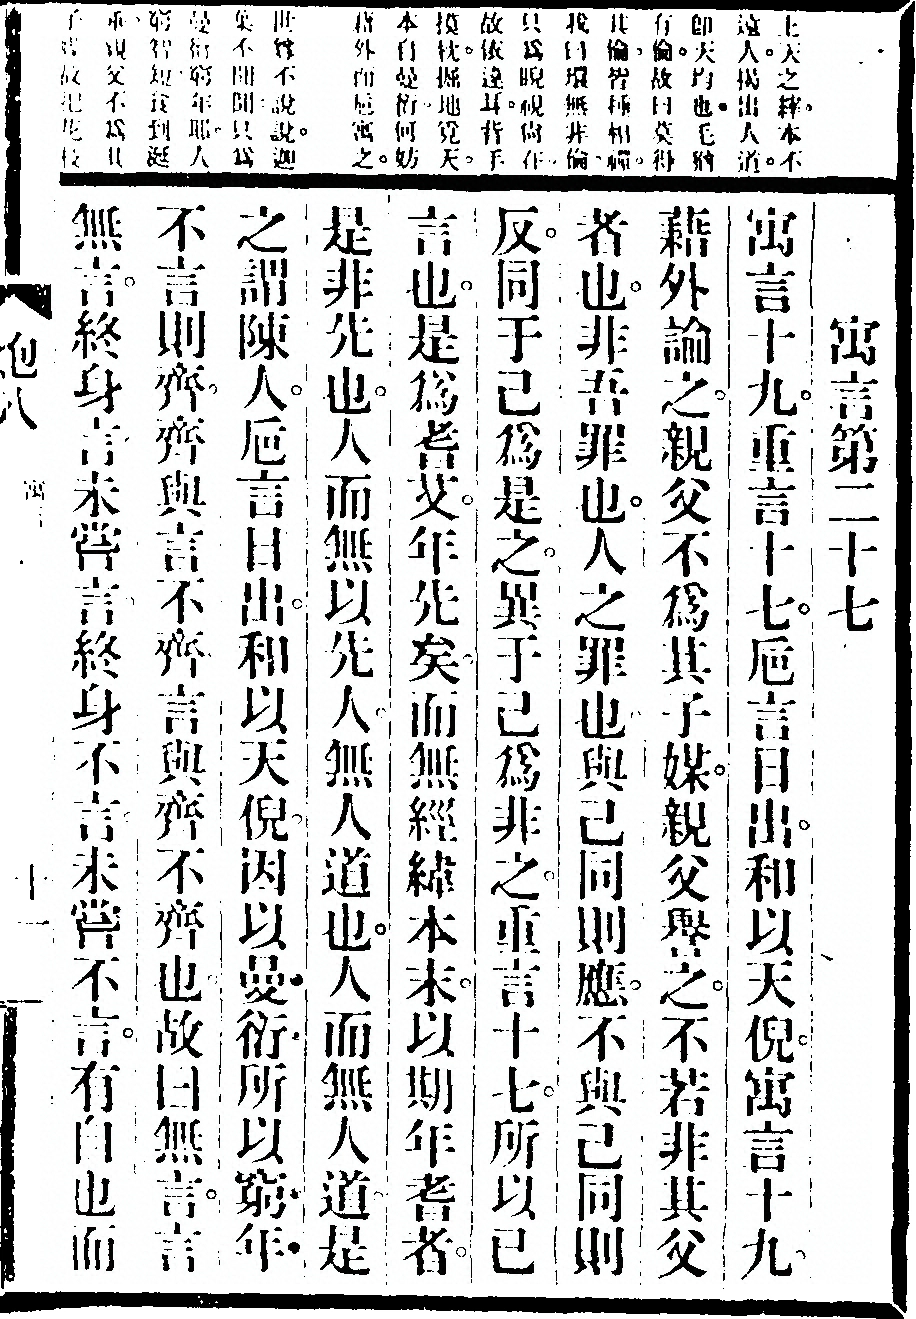 上天之縡本不
遠人揭出人道
卽天均也毛猶
有倫故曰莫得
其倫皆種相禪
我曰環無非倫
只爲睨視尙在
故依遠耳背手
摸枕掘地覓天
本自曼衍何妨
藉外而寓之
世尊不說說迦
葉不聞聞只爲
曼衍窮年耶人
窮智短食到
重親父不爲其
寓言第二十七
寓言十九重言十七巵言日出和以天倪寓言十九
藉外論之親父不爲其子媒親父譽之不若非其父
者也非吾罪也人之罪也與己同則應不與己同則
反同于己爲是之異于己爲非之重言十七所以已
言也是爲耆艾年先矣而無經緯本末以期年耆者
是非先也人而無以先人無人道也人而無人道是
之謂陳人巵言日出和以天倪因以曼衍所以窮年
不言則齊齊與言不齊言與齊不齊也故曰無言言
無言終身言未嘗言終身不言未嘗不言有自也而
炮八
寓
十一